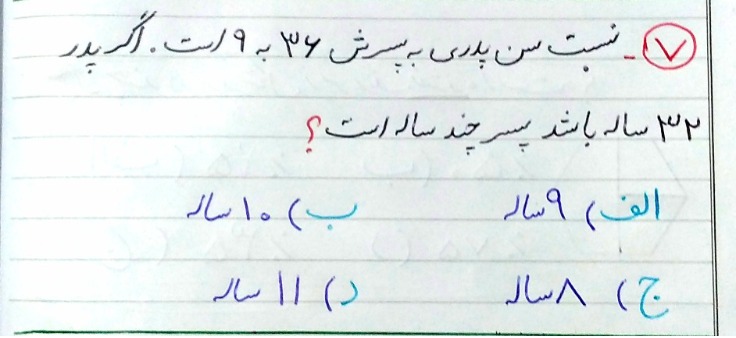 ۷- نسبت سن پدری به پسرش ۳۶ به ۹ است. اگر پدر
۳۲ ساله باشد پسر چند ساله است؟
الف) ۹ ساله ب) ۱۰ ساله
ج) ۸ ساله د) ۱۱ ساله